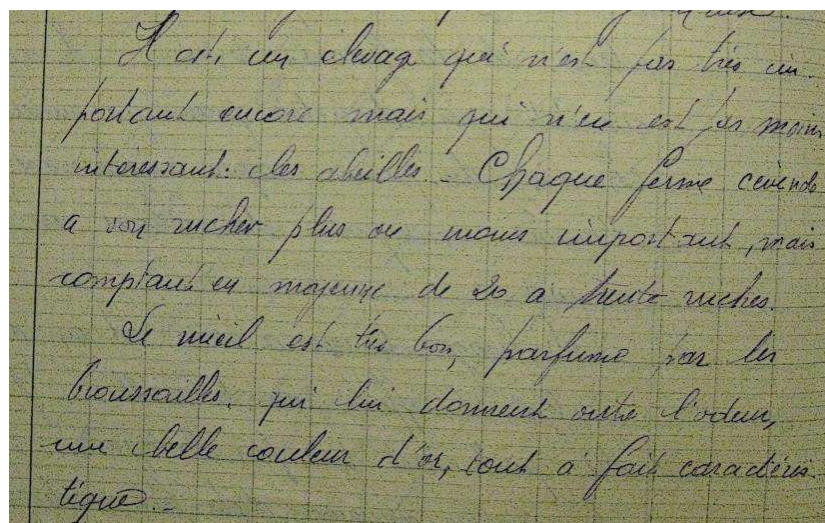 Il est un élevage qui n'est pas très im-
portant encore mais qui n'en est pas moins
intéressant: les abeilles - Chaque ferme cévenole
a son rucher plus ou moins important, mais
comptant en moyenne de 20 à trente ruches.
Le miel est très bon, parfumé par les
broussailles, qui lui donnent outre l'odeur,
une belle couleur d'or, tout à fait caractéris-
tique.-